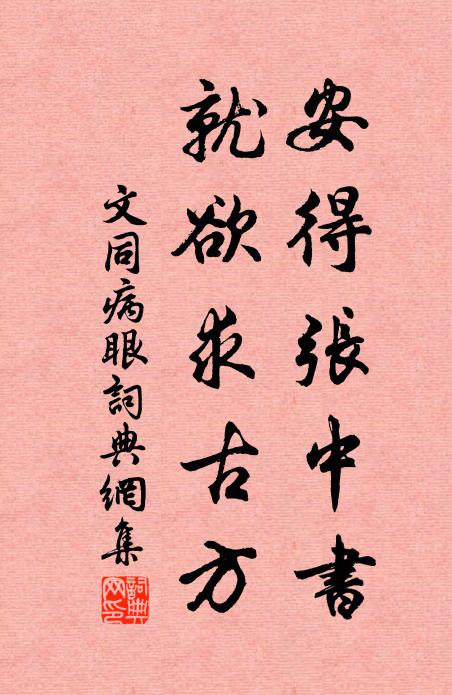 安得張中書
就欲求古方
文同病眼詞典網集
詞典網印